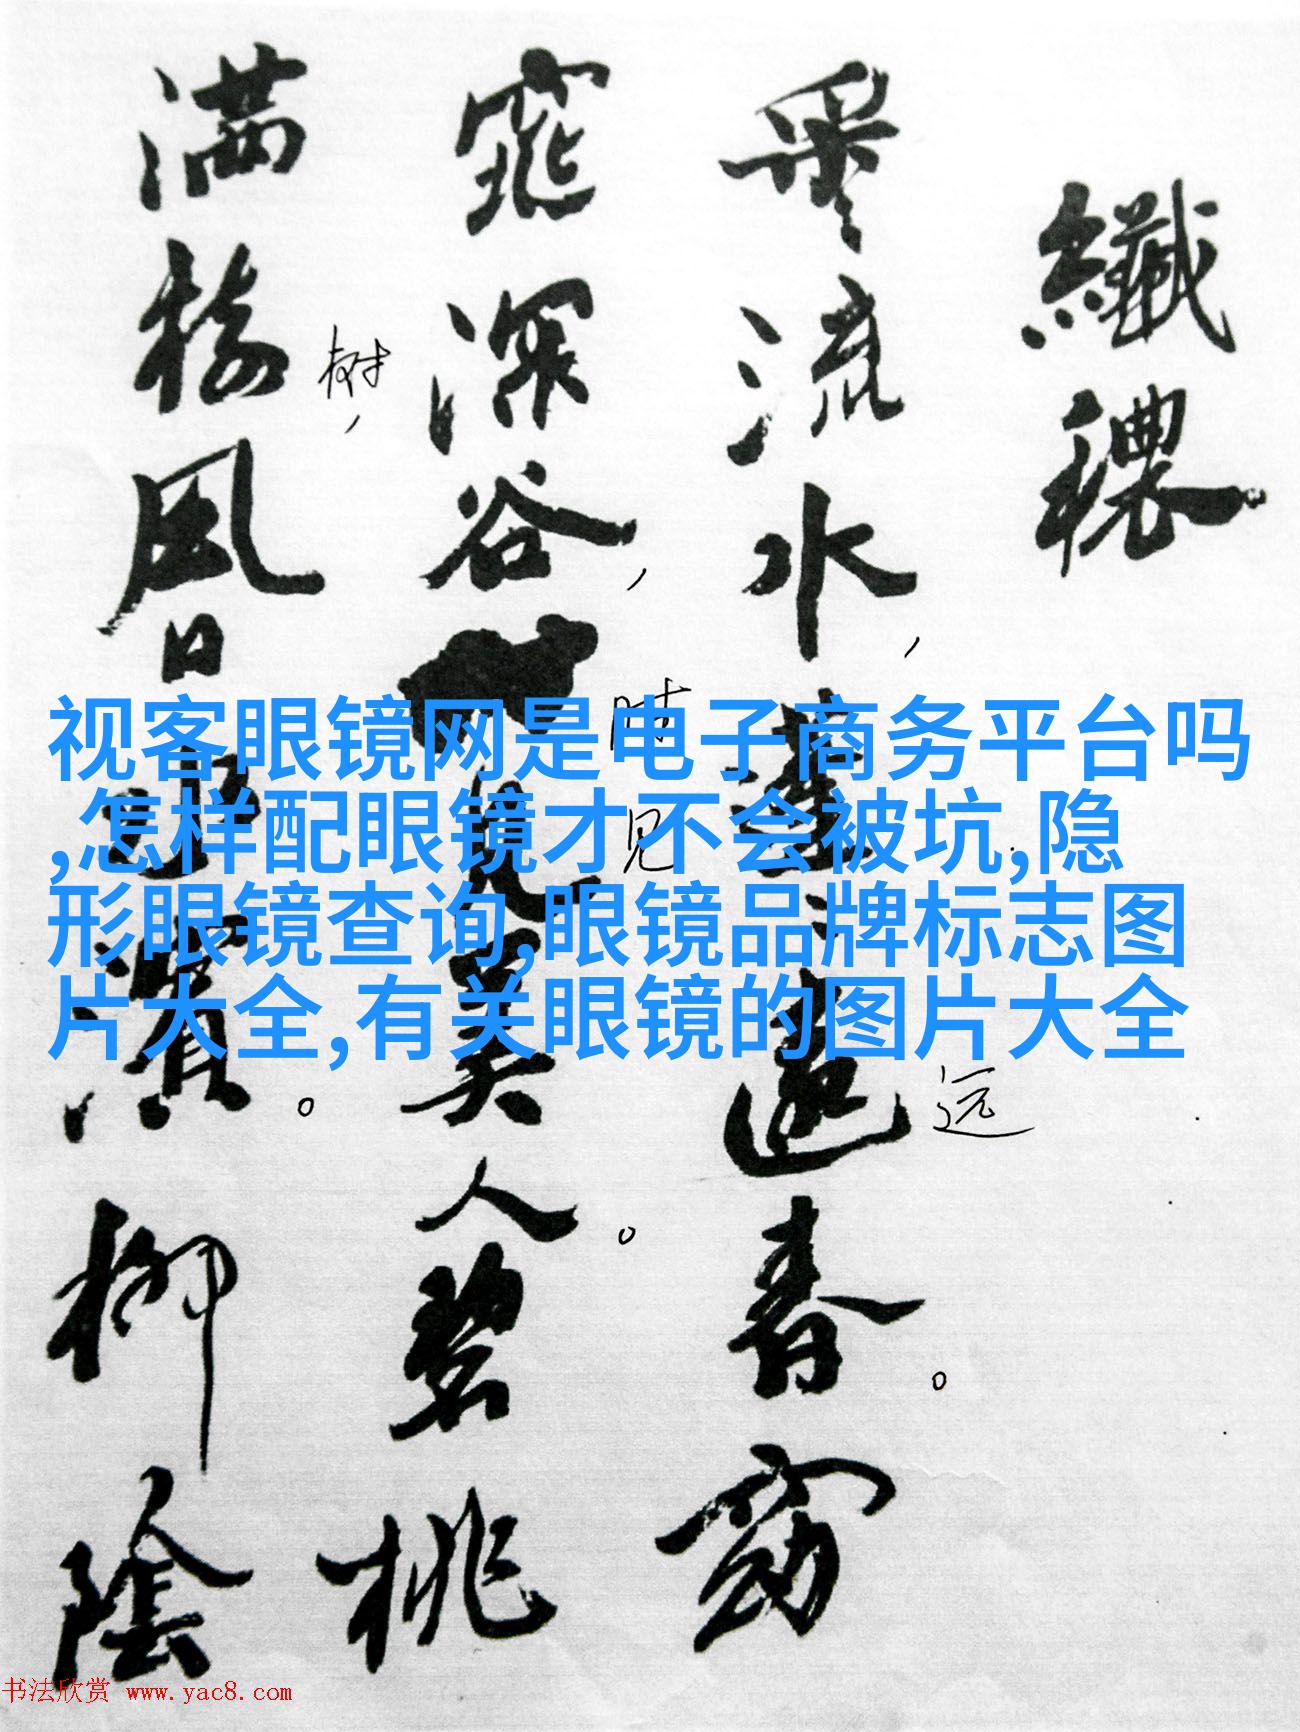 纖穠
采々流水，蓬々遠春。窈
远
窕深谷，見美人。碧桃
时
见
满樹風日水濱。柳陰
树，
视客眼镜网是电子商务平台吗
,怎样配眼镜才不会被坑,隐
形眼镜查询,眼镜品牌标志图
片大全,有关眼镜的图片大全
书法欣赏 www.yac8.com